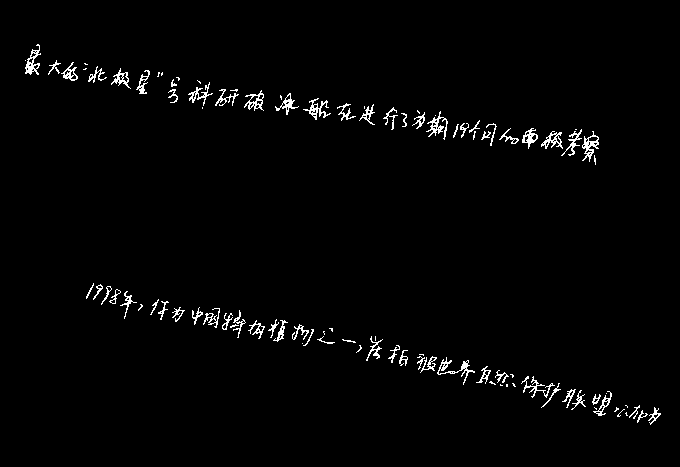 最大的“北极星”号科研破冰船在进行了为期19个月的南极考察
1998年，作为中国特有植物之一，崖柏被世界自然保护联盟公布为